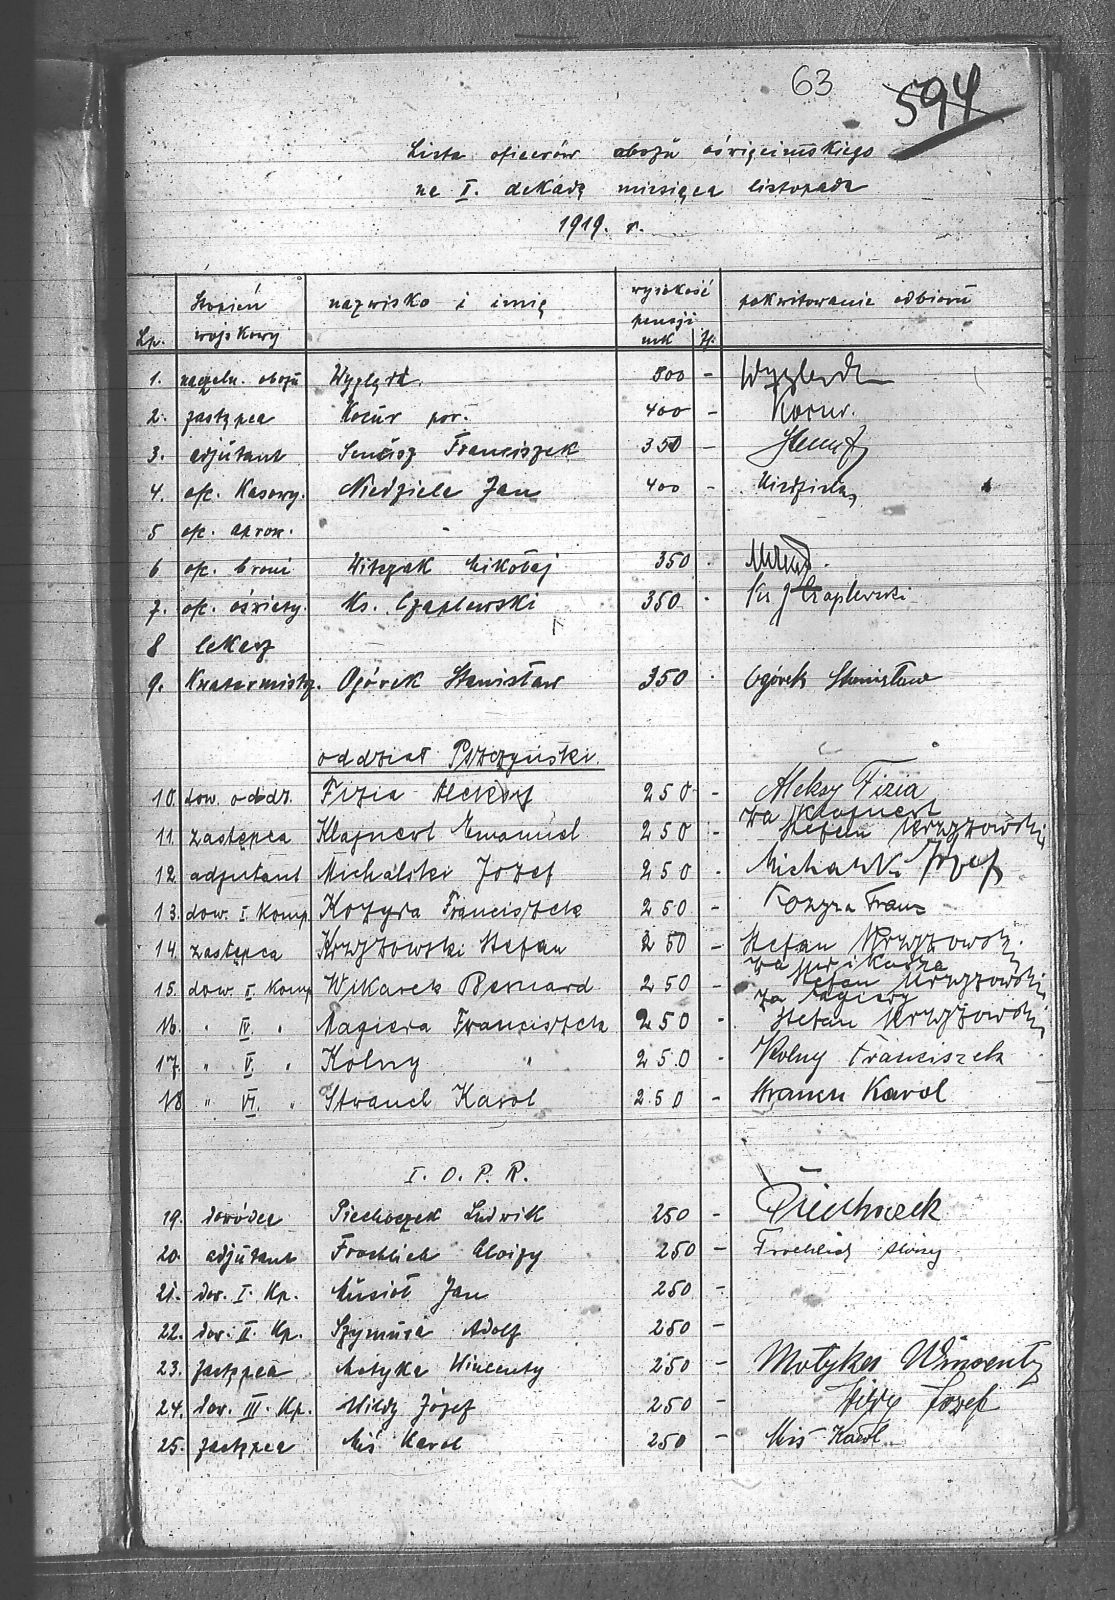 63
594
Lista oficerów obozu oświęcimskiego
na I. dekadę miesiąca listopada
1919. r.
Lp. Stopień wojskowy nazwisko i imię wysokość pensji mk f. pokwitowanie odbioru
1. naczeln. obozu Wyględa. 800 - Wyglenda
2. zastępca Kocur por. 400 - Kocur.
3. adjutant Franciszek 350 -
4. ofc. Kasowy. Niedziela Jan 400 - Niedziela
5 ofc. aprow.
6 ofc. broni Witczak Mikołaj 350 .
7. ofc. oświaty. Ks. Czaplewski 350 . Ks J Czaplewski
8 lekarz
9. Kwatermistrz. Ogórek Stanisław 350 . Ogórek Stanisław
oddział Pszczyński.
10. dow. oddz. Fizia Aleksy 250 - Aleksy Fizia
11. zastępca Klajnert Emanuel 250 - za Klajnert Stefan Krzyżowski
12 adjutant Michalski Jozef 250 . Michalski Jozef
13. dow. I. Komp. Kozyra Franciszek 250 - Kozyra Franc
14. zastępca Krzyżowski Stefan 250 - Stefan Krzyżowski
15. dow. I. Komp Wikarek Bernard 250 - za Stefan Krzyżowski
16. " IV. " Magiera Franciszek 250 - za Magiery Stefan Krzyżowski
17. " V. " Kolny " 250 - Kolny Franciszek
18 " VI. " Strauch Karol 250 - Strauch Karol
I. O. P. R.
19. dowódca Piechoczek Ludwik 250 - Piechoczek
20. adjutant Froehlich Alojzy 250 - Froehlich Alojzy
21. dow. I. Kp. Musioł Jan 250 -
22. dow. II. Kp. Szymura Adolf 250 -
23. zastępca Motyka Wincenty 250 - Motyka Wincenty
24. dow. III. Kp. Józef 250 - Józef
25. zastępca Miś Karol 250 - Miś Karol